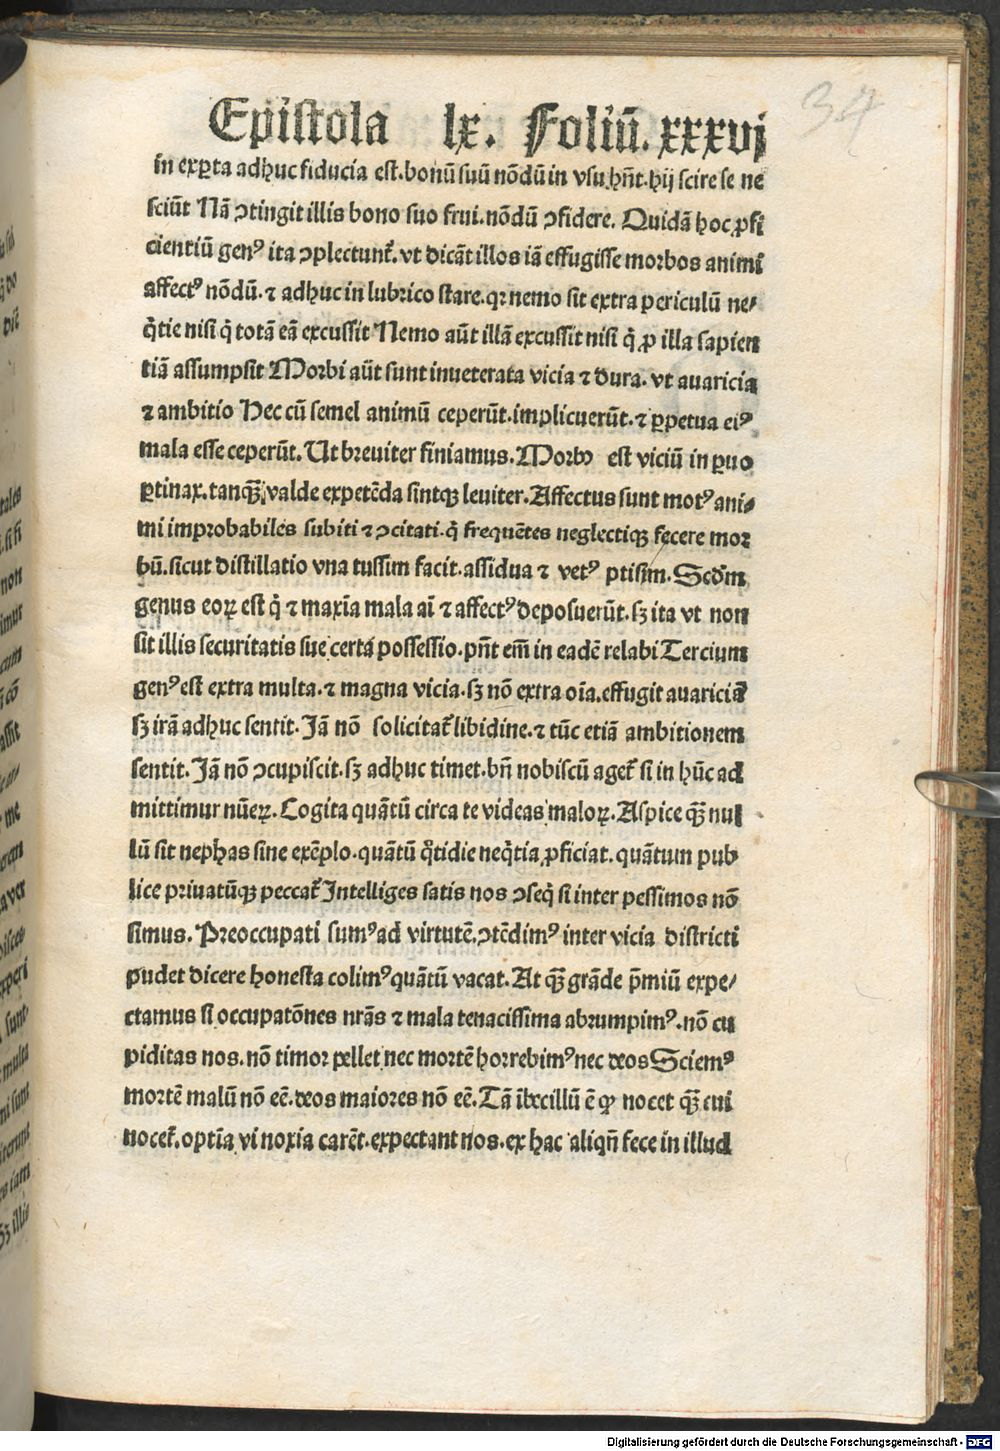 34
Epistola lx. Foliū. xxxvj
in exꝑta adhuc fiducia est. bonū suū nōdū in vsu hñt. hij scire se ne
sciūt Nā ꝯtingit illis bono suo frui. nōdū ꝯfidere. Quidā hoc ꝓfi
cientiū genꝰ ita ꝯplectunt᷑. vt dicāt illos iā effugisse morbos animi
affectꝰ nōdū. ⁊ adhuc in lubrico stare. qꝛ nemo sit extra periculū ne⸗
q̇tie nisi q̇ totā eā excussit Nemo aūt illā excussit nisi q̇ ꝓ illa sapien
tiā assumpsit Morbi aūt sunt inueterata vicia ⁊ dura. vt auaricia
⁊ ambitio Hec cū semel animū ceperūt. implicuerūt. ⁊ ꝑpetua eiꝰ
mala esse ceperūt. Ut breuiter finiamus. Morbꝰ est viciū in ꝑuo
ꝑtinax. tanqꝫ valde expetēda sintqꝫ leuiter. Affectus sunt motꝰ ani⸗
mi improbabiles subiti ⁊ ꝯcitati. q̇ frequētes neglectiqꝫ fecere mor
bū. sicut distillatio vna tussim facit. assidua ⁊ vetꝰ ptisim. Scd'm
genus eoꝝ est q̇ ⁊ maxīa mala aī ⁊ affectꝰ deposuerūt. sꝫ ita vt non
sit illis securitatis sue certa possessio. pñt em̄ in eadē relabi Tercium
genꝰ est extra multa. ⁊ magna vicia. sꝫ nō extra oīa. effugit auariciā
sꝫ irā adhuc sentit. Jā nō solicitat᷑ libidine. ⁊ tūc etiā ambitionem
sentit. Jā nō ꝯcupiscit. sꝫ adhuc timet. bñ nobiscū aget᷑ si in hūc ad
mittimur nūeꝝ. Cogita quātū circa te videas maloꝝ. Aspice qꝫ̄ nul
lū sit nephas sine exēplo. quātū q̊tidie neq̇tia ꝓficiat. quātum pub
lice priuatūqꝫ peccat᷑ Intelliges satis nos ꝯseq̇ si inter pessimos nō
simus. Preoccupati sumꝰ ad virtutē. ꝯtēdimꝰ inter vicia districti
pudet dicere honesta colimꝰ quātū vacat. At qꝫ̄ grāde p̄miū expe⸗
ctamus si occupatōnes nr̄as ⁊ mala tenacissima abrumpimꝰ. nō cu
piditas nos. nō timor pellet nec mortē horrebimꝰ nec deos Sciemꝰ
mortē malū nō eē. deos maiores nō eē. Tā ībecillū ē qꝙ nocet qꝫ̄ cui
nocet᷑. optīa vi noxia carēt. expectant nos. ex hac aliqñ fece in illud
Digitalisierung gefördert durch die Deutsche Forschungsgemeinschaft - DFG